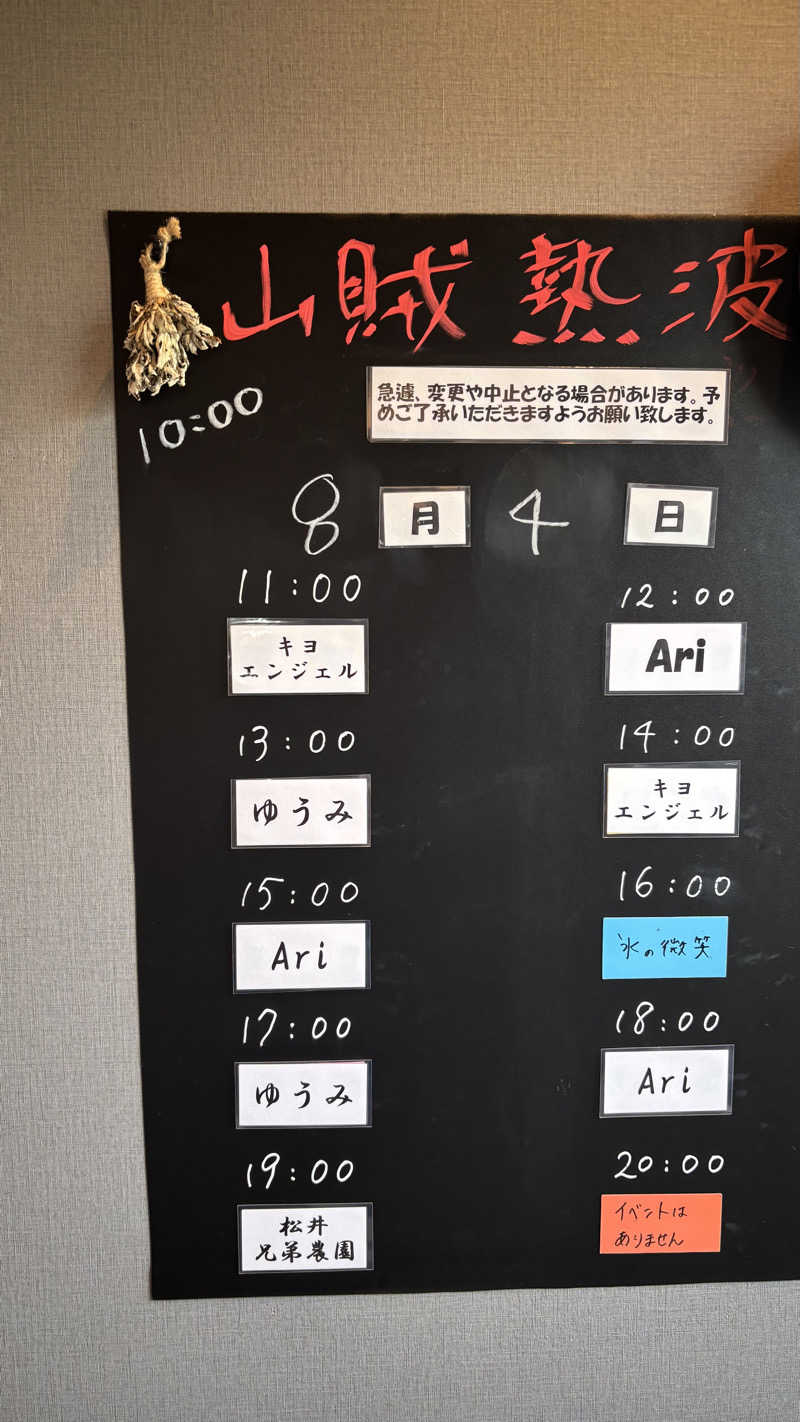 山賊熱波
10:00
急遽、変更や中止となる場合があります。予
めご了承いただきますようお願い致します。
8月4日
11:00
キヨ
エンジェル
12:00
Ari
13:00
ゆうみ
14:00
キヨ
エンジェル
15:00
Ari
16:00
氷の微笑
17:00
ゆうみ
18:00
Ari
19:00
松井
兄弟農園
20:00
イベントは
ありません